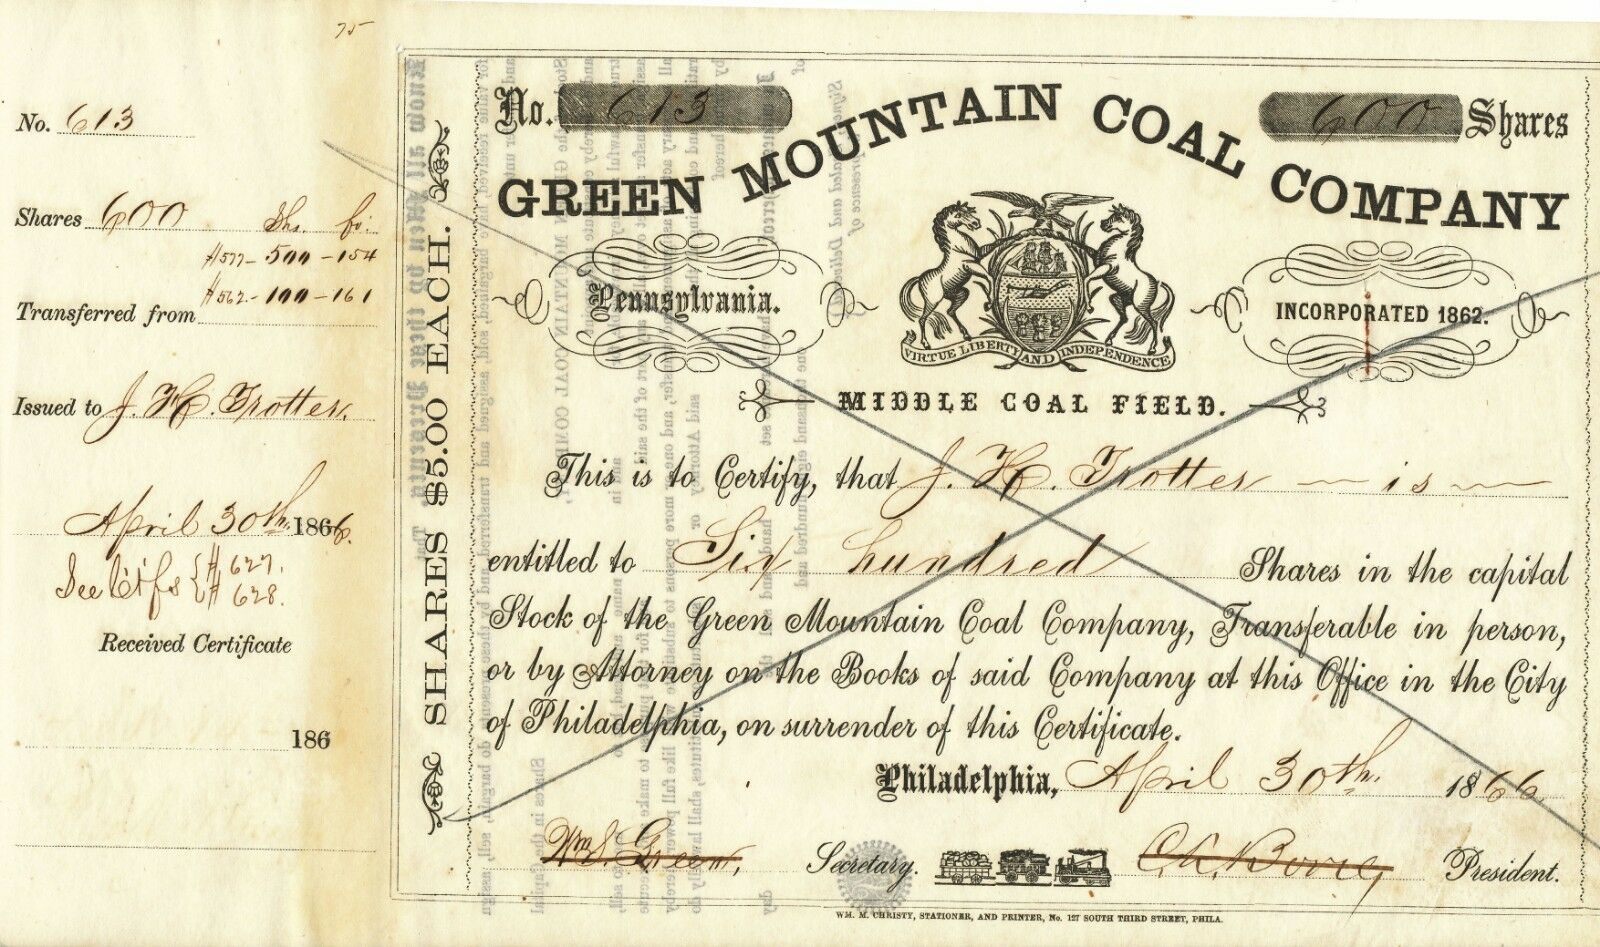 75
No. 613
Shares 600 Shs. fo:
#577 - 500 - 154
#562 - 100 - 161
Transferred from
Issued to J. H. Trotter.
April 30th 1866.
See Ctfs { # 627.
# 628.
Received Certificate
186
SHARES $5.00 EACH.
No. 613
600 Shares
GREEN MOUNTAIN COAL COMPANY
Pennsylvania.
VIRTUE LIBERTY AND INDEPENDENCE
INCORPORATED 1862.
MIDDLE COAL FIELD.
This is to Certify, that J. H. Trotter — is —
entitled to Six hundred Shares in the capital
Stock of the Green Mountain Coal Company, Transferable in person,
or by Attorney on the Books of said Company at this Office in the City
of Philadelphia, on surrender of this Certificate.
Philadelphia, April 30th 1866.
Wm S. Green, Secretary. C. A. Borie, President.
WM. M. CHRISTY, STATIONER, AND PRINTER, No. 127 SOUTH THIRD STREET, PHILA.